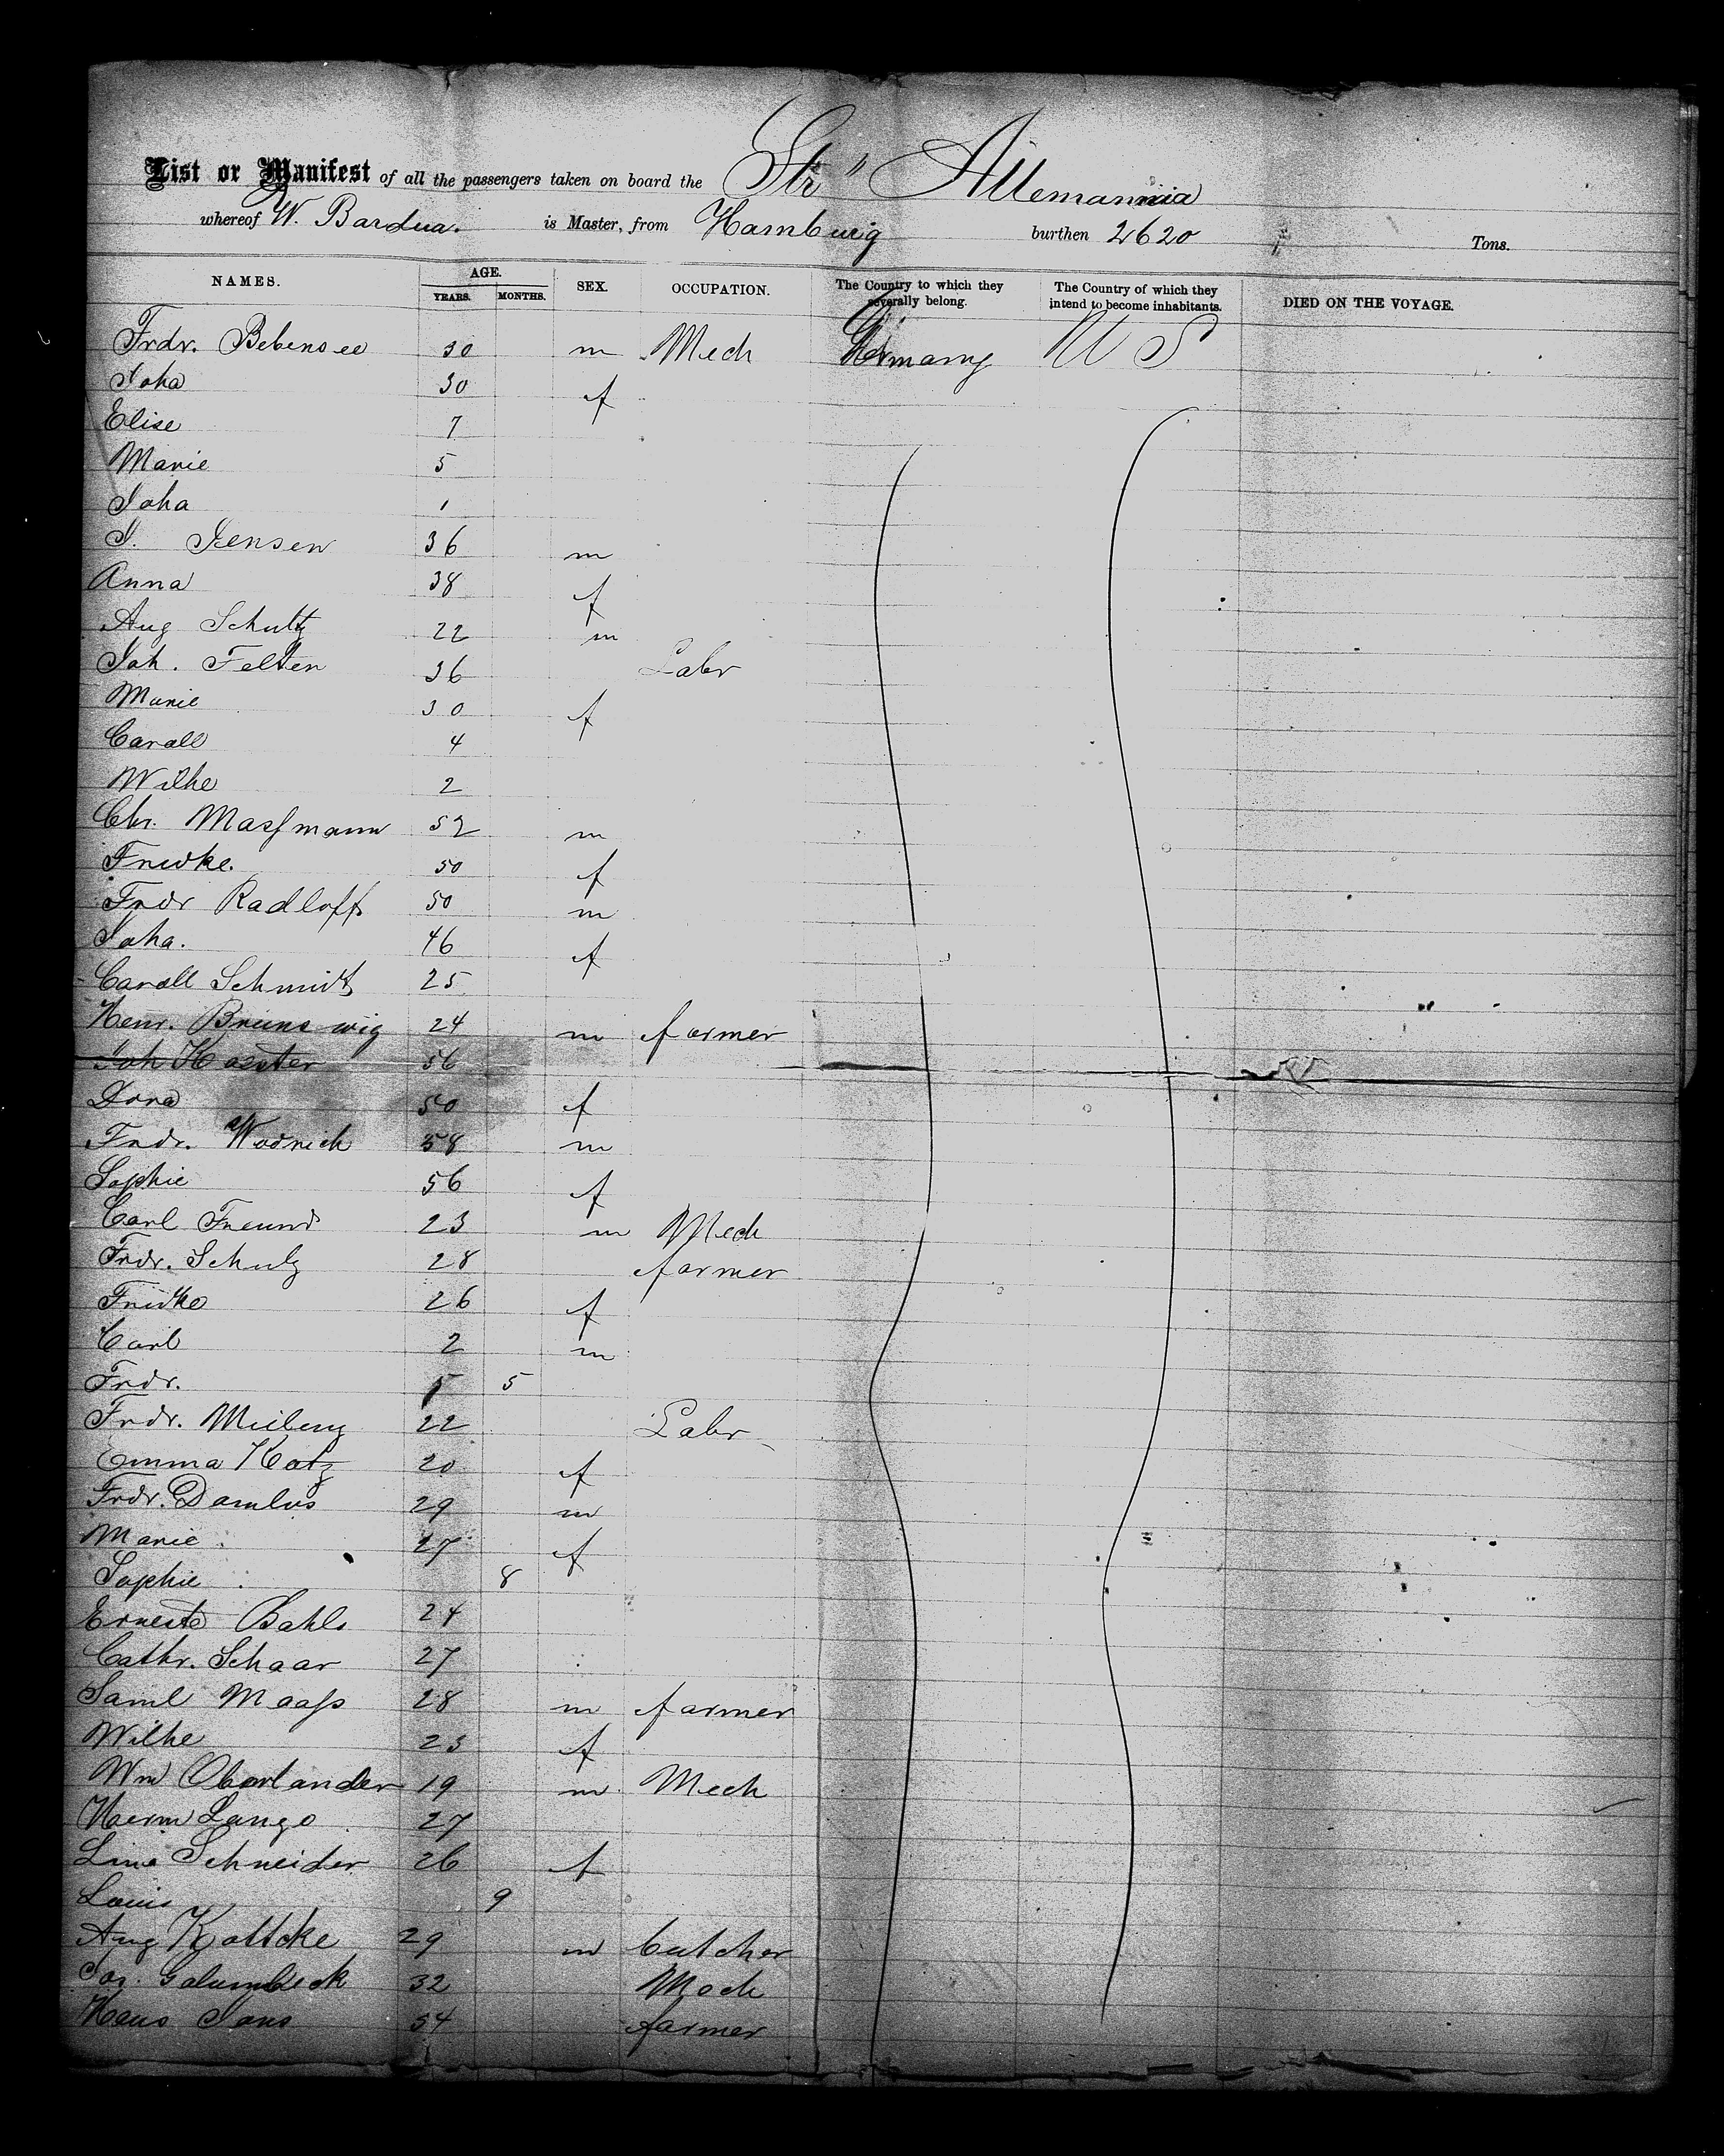 List or Manifest of all the passengers taken on board the Str " Allemannia
whereof W. Bardua. is Master, from Hamburg burthen 2620 Tons.
NAMES. AGE. SEX. OCCUPATION. The Country to which they severally belong. The Country of which they intend to become inhabitants. DIED ON THE VOYAGE.
YEARS. MONTHS.
Frdr. Bebensee 30 m Mech Germany U S
Joha 30 f
Elise 7
Marie 5
Joha 1
J. Jensen 36 m
Anna 38 f
Aug Schultz 22 m
Joh. Felten 36 Labr
Marie 30 f
Caroll 4
Wilhe 2
Chr. Massmann 52 m
Friedke. 50 f
Frdr Radloff 50 m
Joha. 46 f
Caroll Schmidt 25
Henr. Brunswig 24 m farmer
Joh 56
Dora 50 f
Frdr. Wodrich 58 m
Sophie 56 f
Carl Freund 23 m Mech
Frdr. Schulz 28 farmer
Friedke 26 f
Carl 2 m
Frdr. 5
Frdr. 22 Labr
Emma Kotz 20 f
Frdr. Damlus 29 m
Marie 27 f
Sophie 8
Erneste Bahls 24
Cathr. Schaar 27
Saml Maass 28 m farmer
Wilhe 23 f
Wm Oberlander 19 m Mech
Herm Lange 27
Line Schneider 26 f
Louis 9
Aug Kottcke 29 m butcher
Jos. Golumbeck 32 Mech
Hans 54 farmer